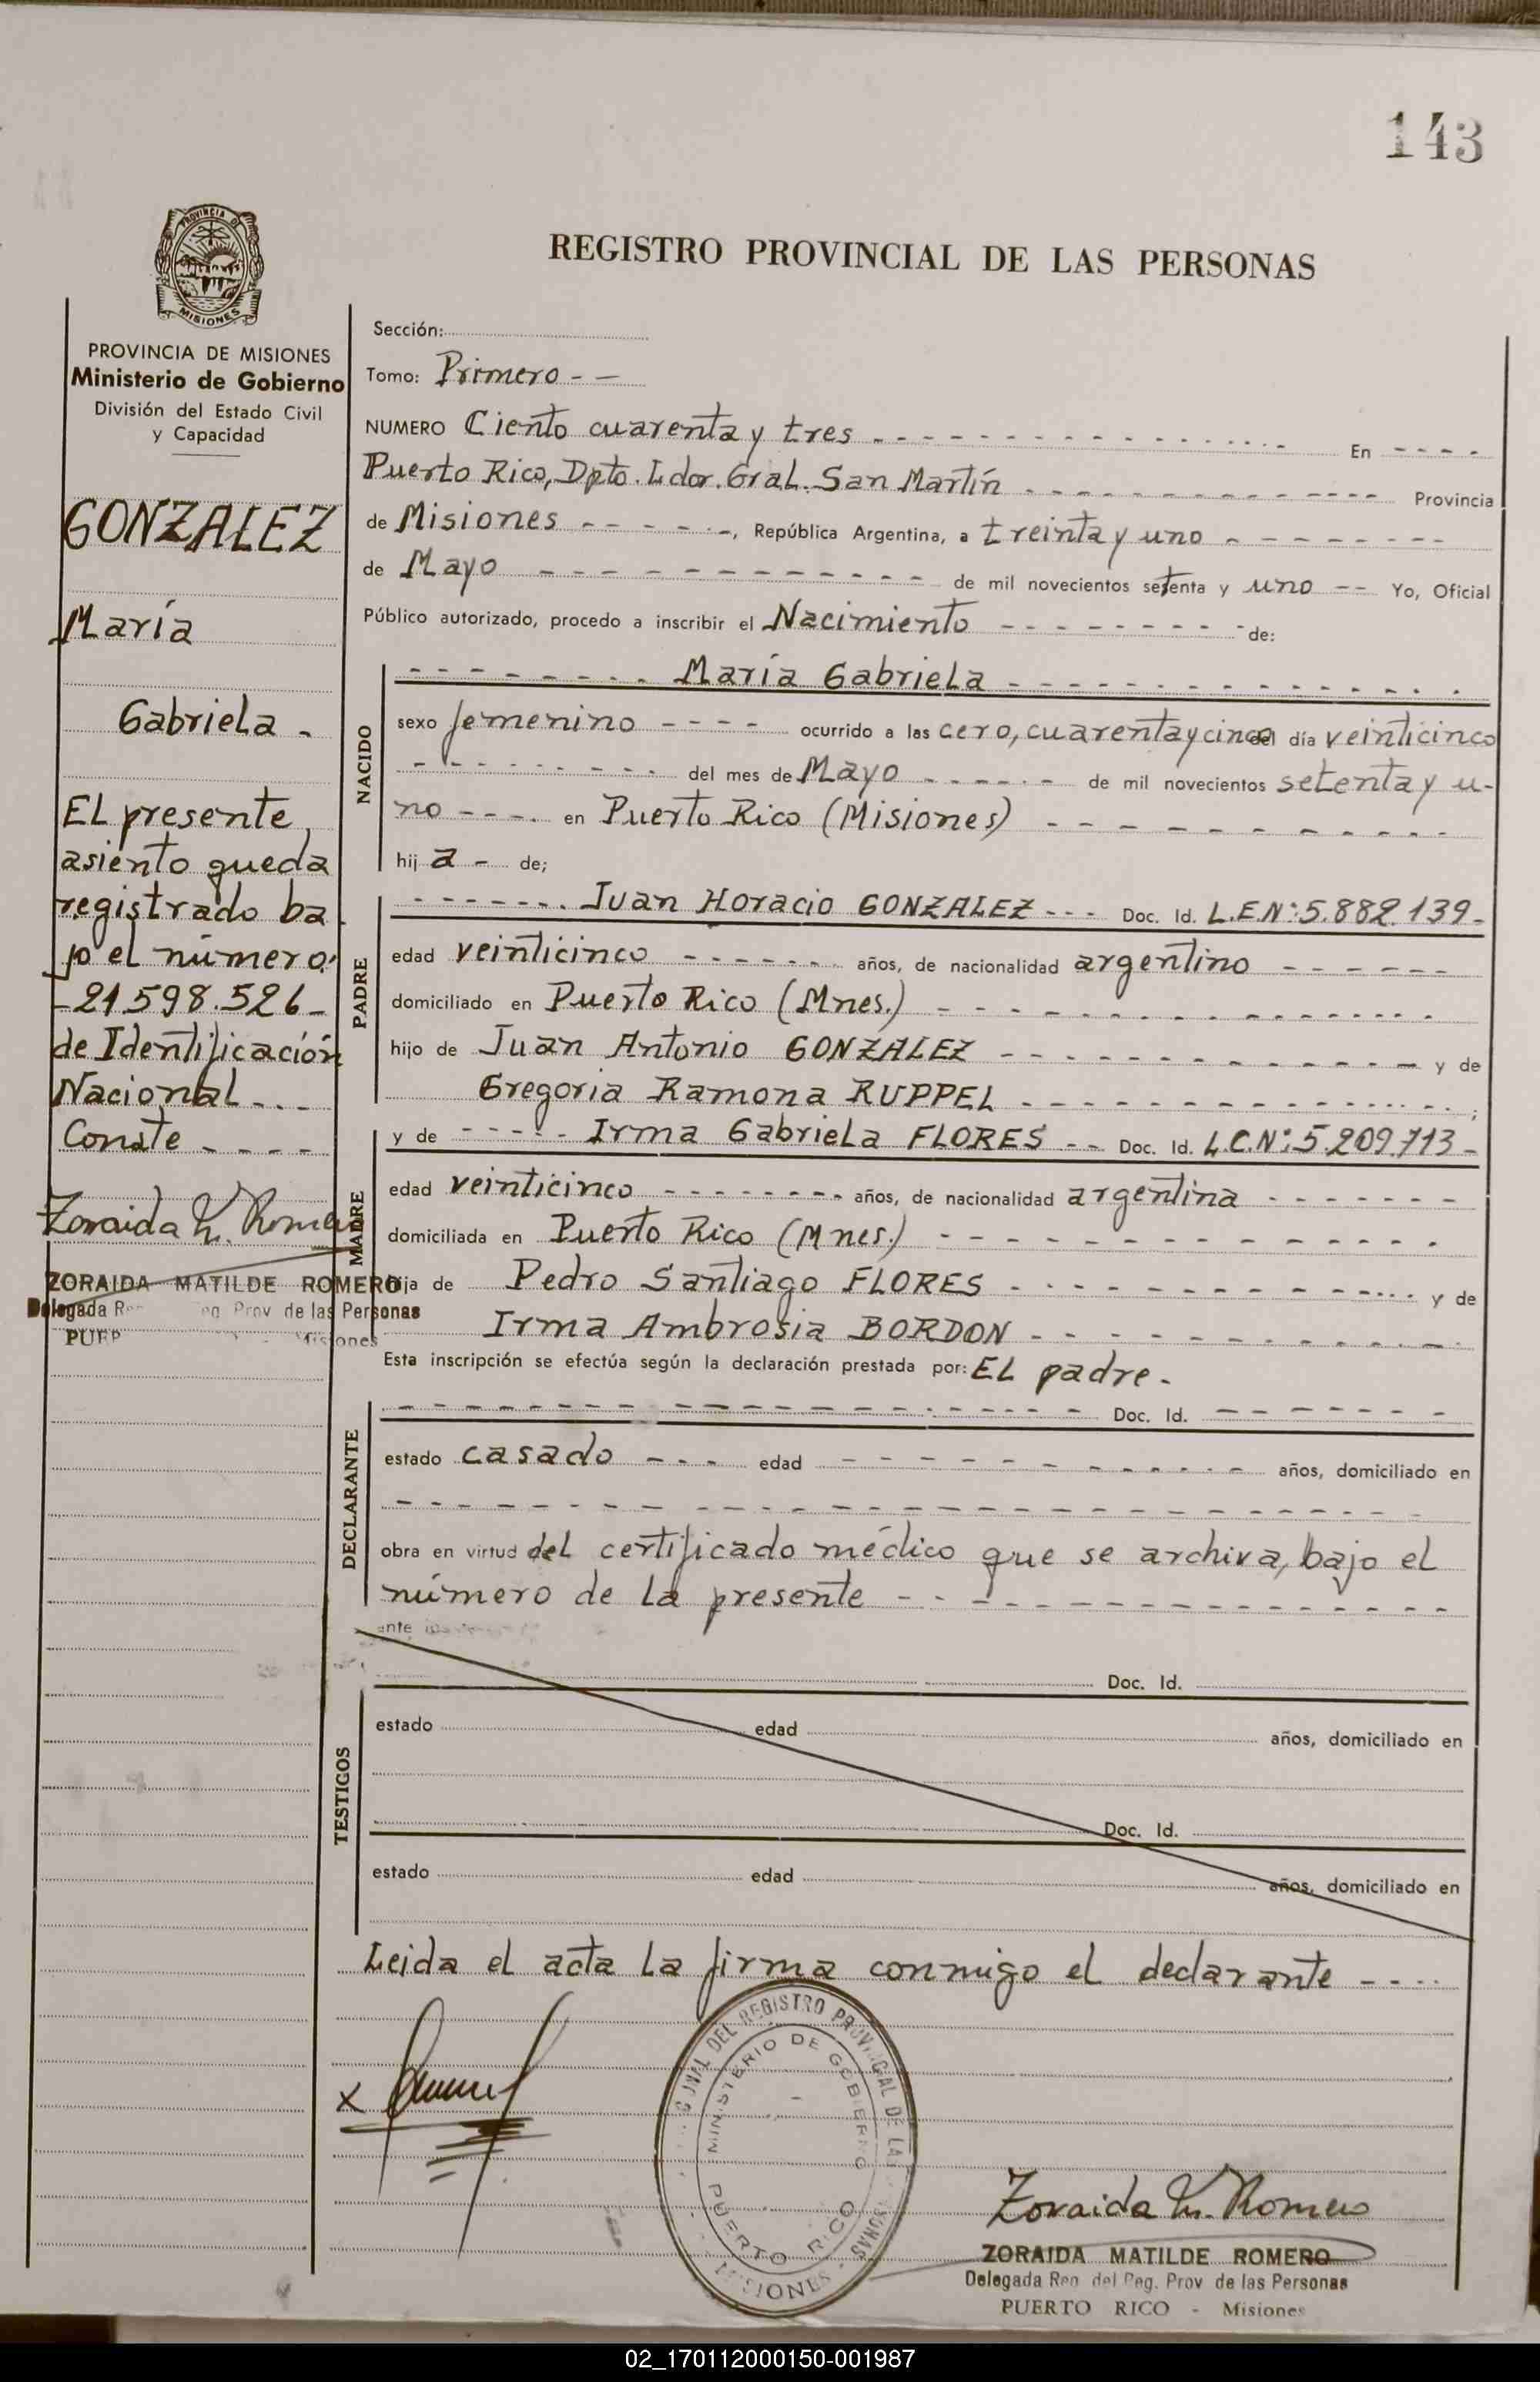 143
PROVINCIA DE
MISIONES
REGISTRO PROVINCIAL DE LAS PERSONAS
PROVINCIA DE MISIONES
Ministerio de Gobierno
División del Estado Civil
y Capacidad
GONZALEZ
María
Gabriela -
El presente
asiento queda
registrado ba
jo el número:
-21.598.526-
de Identificación
Nacional - - -
Conste - - - -
Zoraida M. Romero
ZORAIDA MATILDE ROMERO
Delegada Reg. Prov de las Personas
Misiones
Sección:
Tomo: Primero - -
NUMERO Ciento cuarenta y tres - - - - En - - - -
Puerto Rico, Dpto. Ldor. Gral. San Martín - - - - Provincia
de Misiones - - - - -, República Argentina, a treinta y uno - - - -
de Mayo - - - - de mil novecientos setenta y uno -- Yo, Oficial
Público autorizado, procedo a inscribir el Nacimiento - - - - de:
NACIDO
- - - - María Gabriela - - - -
sexo femenino - - - - ocurrido a las cero, cuarenta y cinco del día veinticinco
- - - - del mes de Mayo - - - - de mil novecientos setenta y u-
no - - - - en Puerto Rico (Misiones) - - - -
hij a - de;
PADRE
- - - - Juan Horacio GONZALEZ - - - Doc. Id. L.E.Nº:5.882.139-
edad veinticinco - - - - años, de nacionalidad argentino - - - -
domiciliado en Puerto Rico (Mnes.) - - - -
hijo de Juan Antonio GONZALEZ - - - - y de
Gregoria Ramona RUPPEL - - - - ;
MADRE
y de - - - - Irma Gabriela FLORES - - Doc. Id. L.C.Nº:5.209.713-
edad veinticinco - - - - años, de nacionalidad argentina - - - -
domiciliada en Puerto Rico (Mnes.) - - - -
hija de Pedro Santiago FLORES - - - - y de
Irma Ambrosia BORDON - - - -
Esta inscripción se efectúa según la declaración prestada por: El padre.
DECLARANTE
- - - - Doc. Id. - - - -
estado casado - - - edad - - - - años, domiciliado en
- - - -
obra en virtud del certificado médico que se archiva, bajo el
número de la presente - - - -
TESTIGOS
Doc. Id.
estado edad años, domiciliado en
Doc. Id.
estado edad años, domiciliado en
Leida el acta la firma conmigo el declarante - - - -
x
DEL REGISTRO PROVINCIAL DE LAS
MINISTERIO DE GOBIERNO
PUERTO RICO
MISIONES
Zoraida M. Romero
ZORAIDA MATILDE ROMERO
Delegada Reg. del Reg. Prov de las Personas
PUERTO RICO - Misiones
02_170112000150-001987